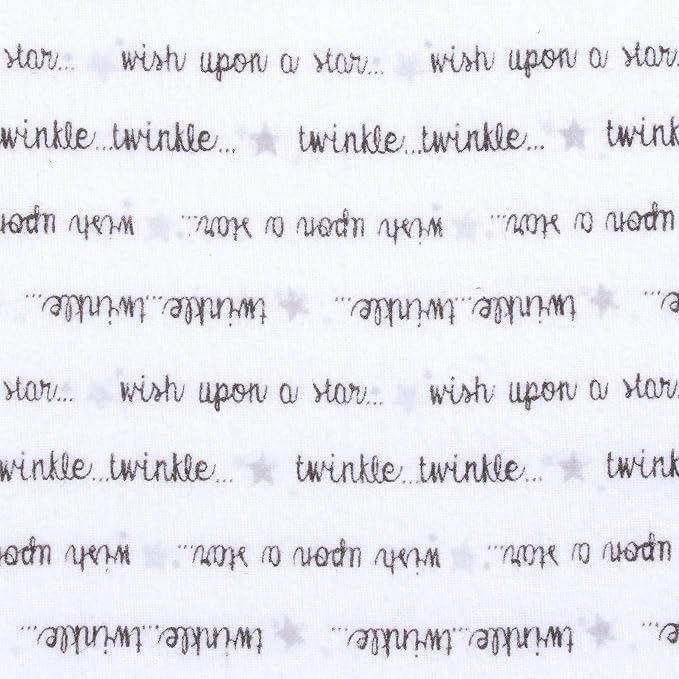 star... wish upon a star... wish upon a star.
winkle...twinkle... twinkle...twinkle... twink
upon a star... wish upon a star... wish upon
e... twinkle...twinkle... twinkle...twinkle...
star... wish upon a star... wish upon a star
winkle...twinkle... twinkle...twinkle... twink
upon a star... wish upon a star... wish upon
e... twinkle...twinkle... twinkle...twinkle...